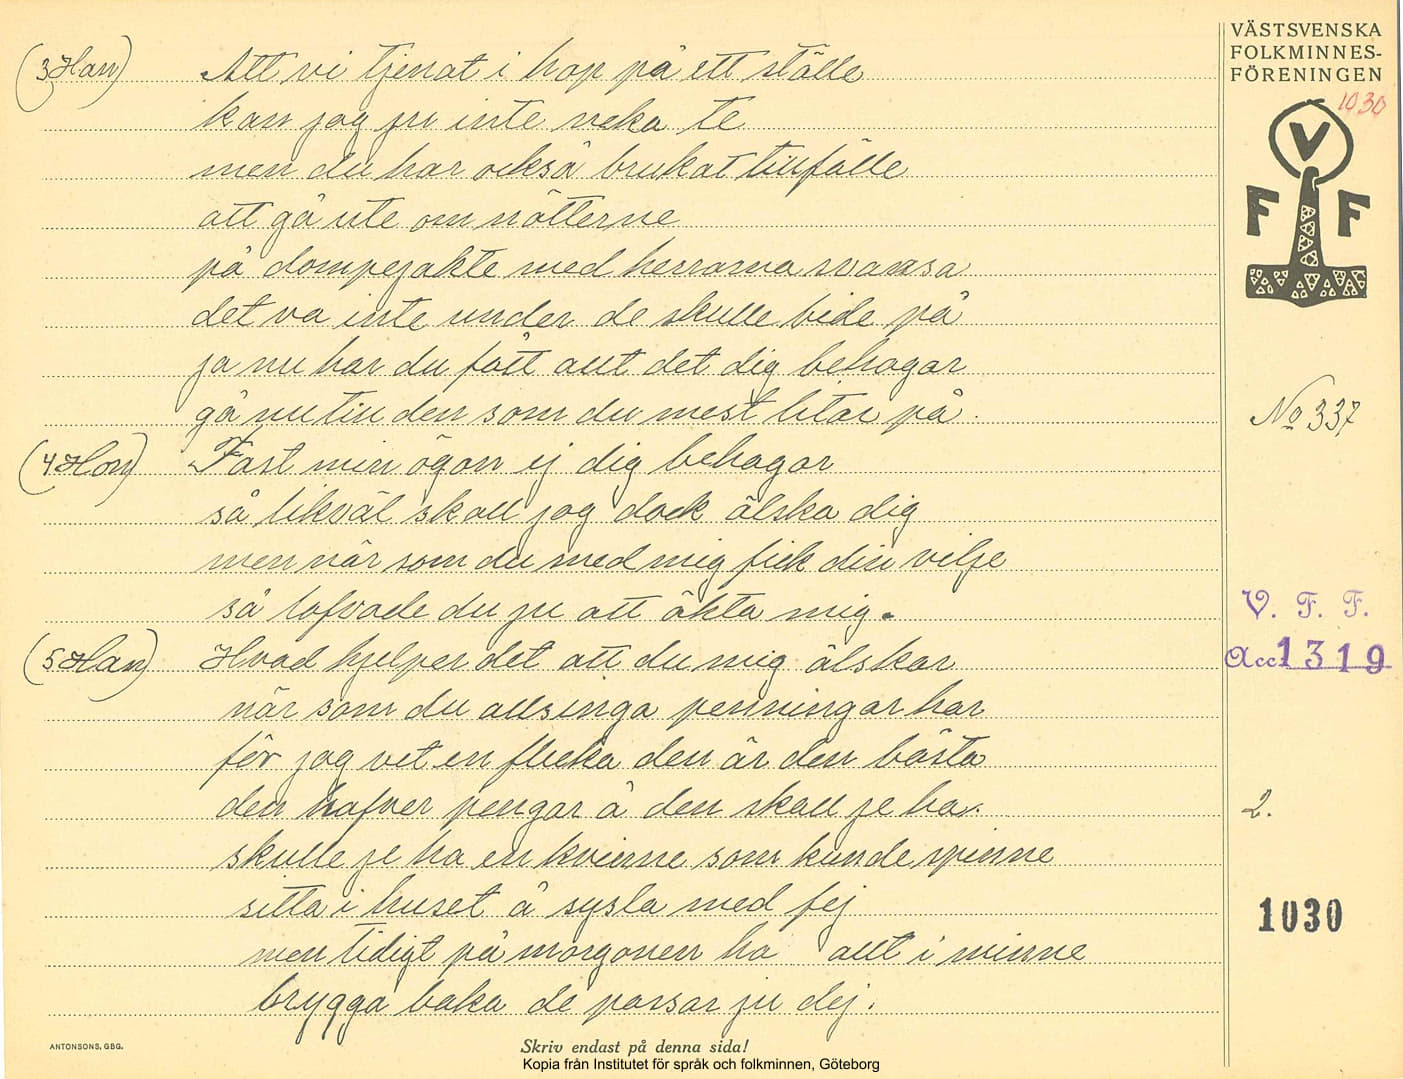 VÄSTSVENSKA
FOLKMINNES-
FÖRENINGEN
1030
V
F F
(3 Han) Att vi tjenat i hop på ett ställe
kan jag ju inte neka te
men du har också brukat tillfälle
att gå ute om nätterne
på dompejakte med herrarna svansa
det va inte under de skulle bide på
ja nu har du fått allt det dig behagar
gå nu till den som du mest litar på.
No 337
(4. Hon) Fast min ögon ej dig behagar
så likväl skall jag dock älska dig
men när som du med mig fick din vilje
så lofvade du ju att äkta mig.
V. F. F.
Acc 1319
(5 Han) Hvad hjelper det att du mig älskar
när som du allsinga penningar har
för jag vet en flicka den är den bästa
den hafver pengar å den skall je ha.
2.
skulle je ha en kvinne som kunde spinne
sitta i huset å sysla med fej
1030
men tidigt på morgonen ha allt i minne
brygga baka de passar ju dej.
ANTONSONS, GBG.
Skriv endast på denna sida!
Kopia från Institutet för språk och folkminnen, Göteborg